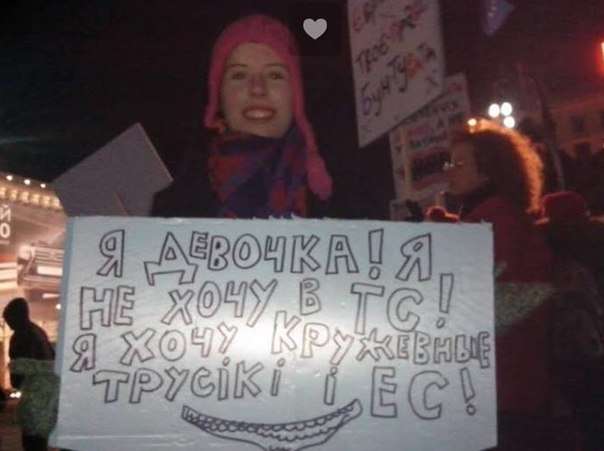 Я ДЕВОЧКА! Я
НЕ ХОЧУ В ТС!
Я ХОЧУ КРУЖЕВНЫЕ
ТРУСІКІ І ЕС!
БУНТУВАТИ